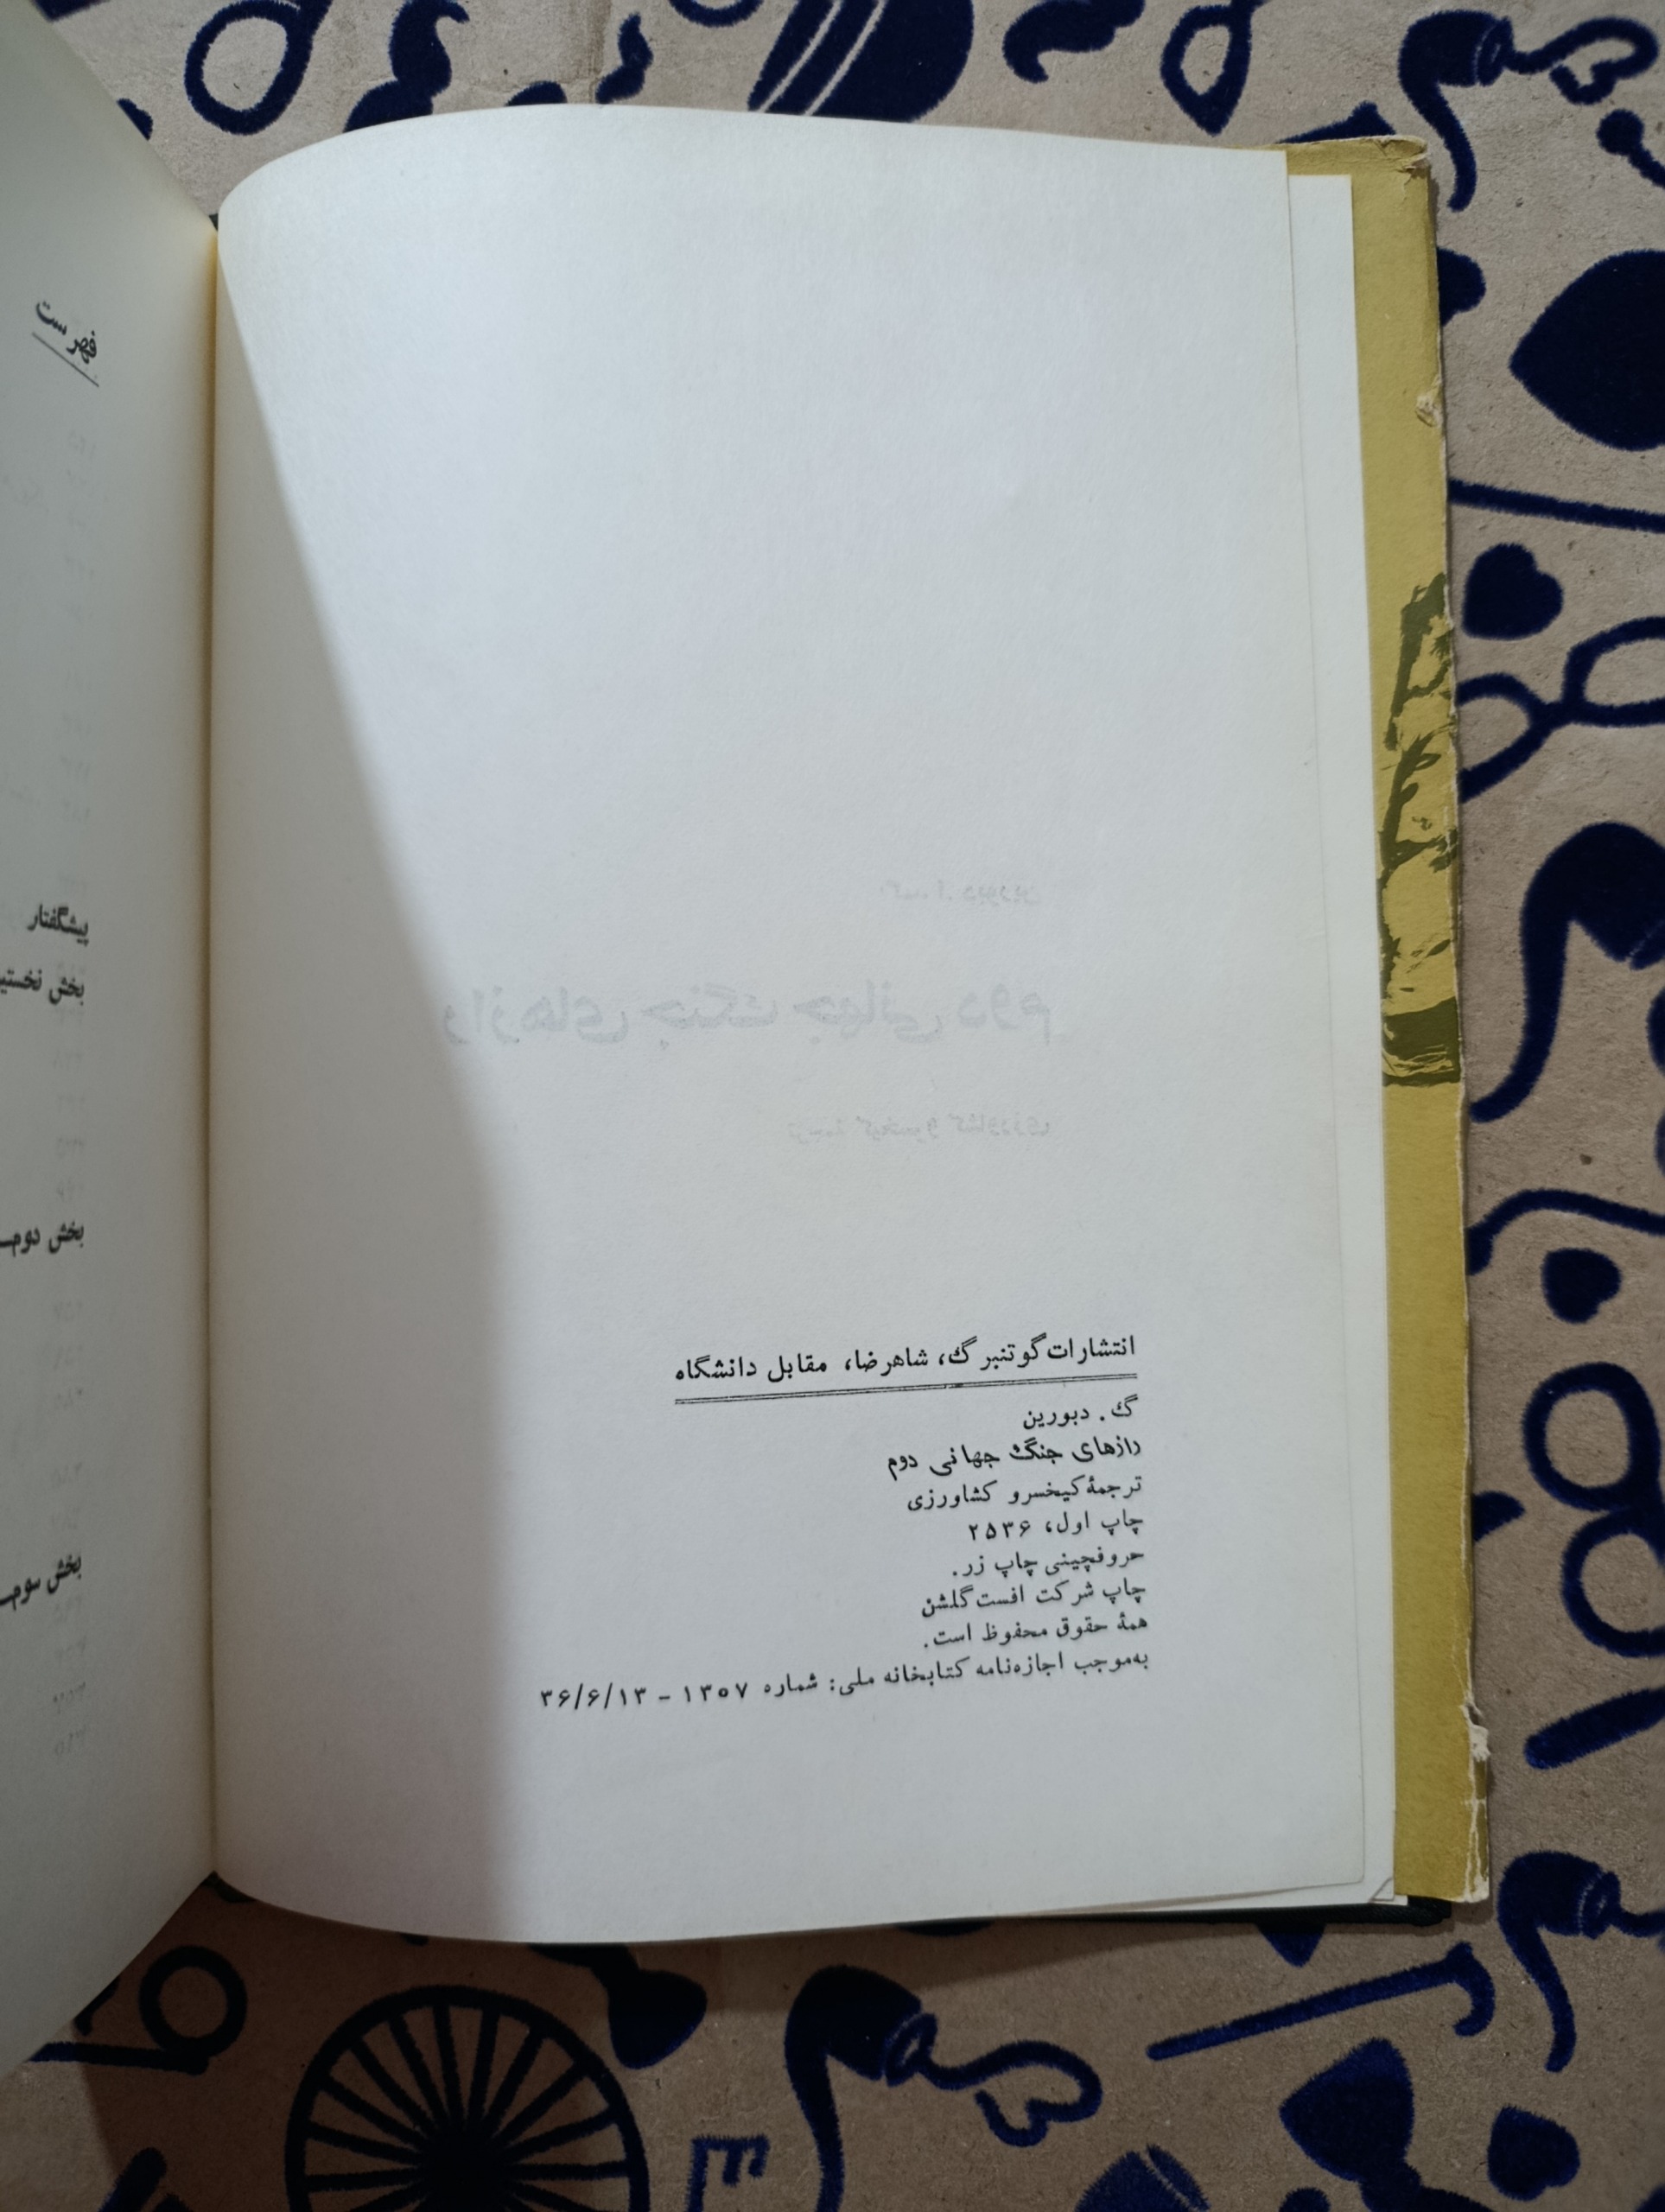 انتشارات گوتنبرگ، شاهرضا، مقابل دانشگاه
گ. دبورین
رازهای جنگ جهانی دوم
ترجمهٔ کیخسرو کشاورزی
چاپ اول، ۲۵۳۶
حروفچینی چاپ زر.
چاپ شرکت افست گلشن
همهٔ حقوق محفوظ است.
به‌موجب اجازه‌نامه کتابخانه ملی: شماره ۱۳۵۷ - ۳۶/۶/۱۳
فهرست
پیشگفتار
بخش
بخش دوم
بخش سوم